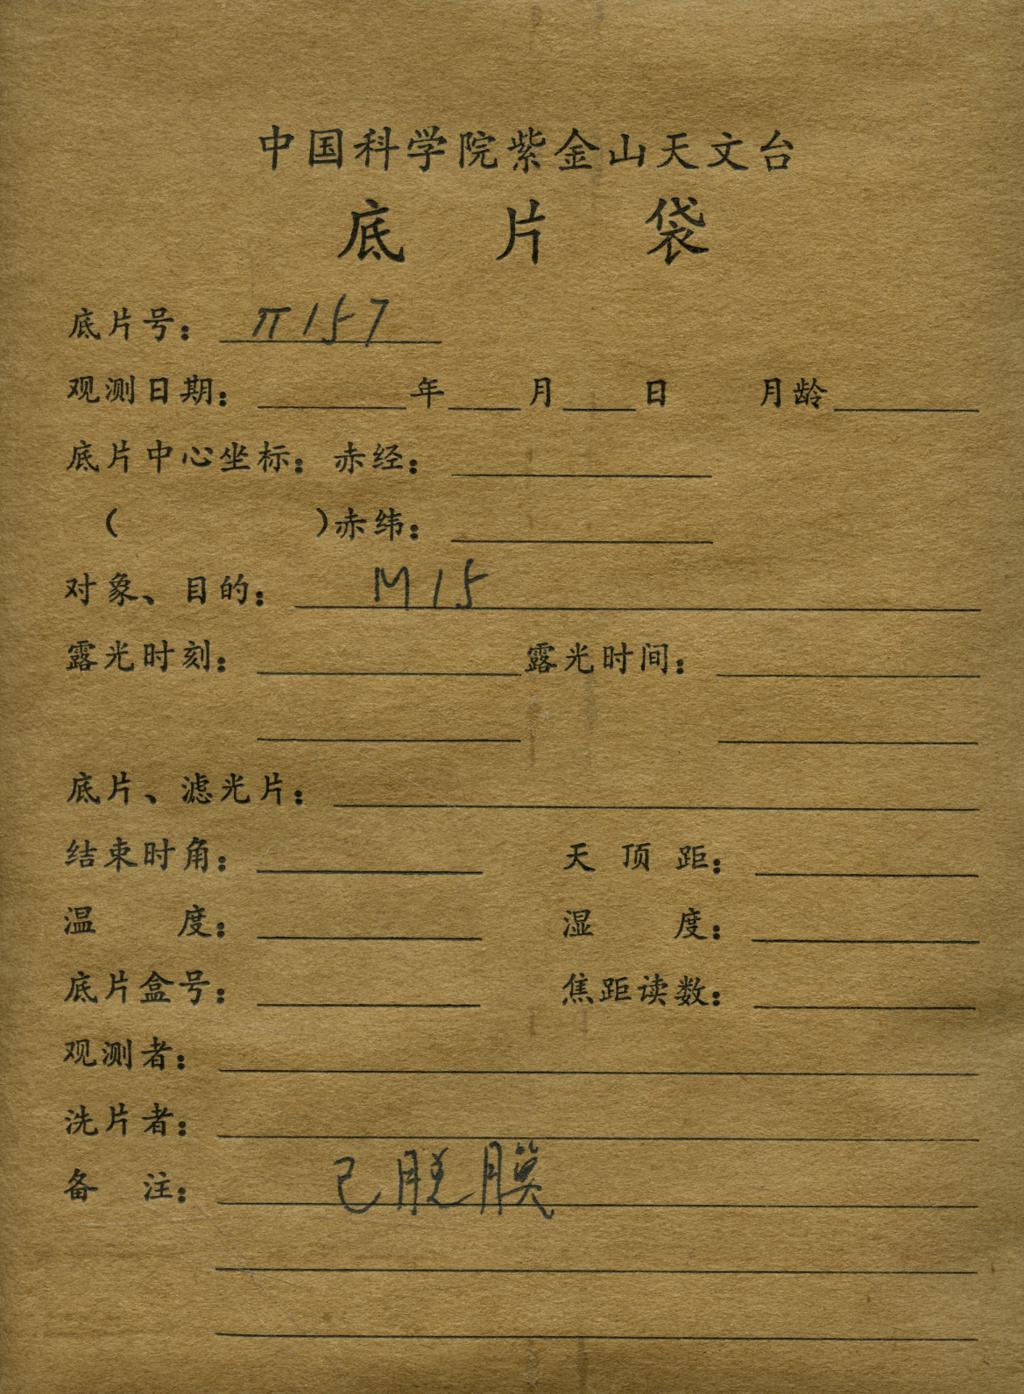 中国科学院紫金山天文台
底片袋
底片号：π157
观测日期：年 月 日 月龄
底片中心坐标：赤经：
（ ）赤纬：
对象、目的：M15
露光时刻： 露光时间：
底片、滤光片：
结束时角： 天顶距：
温度： 湿度：
底片盒号： 焦距读数：
观测者：
洗片者：
备注：已脱膜